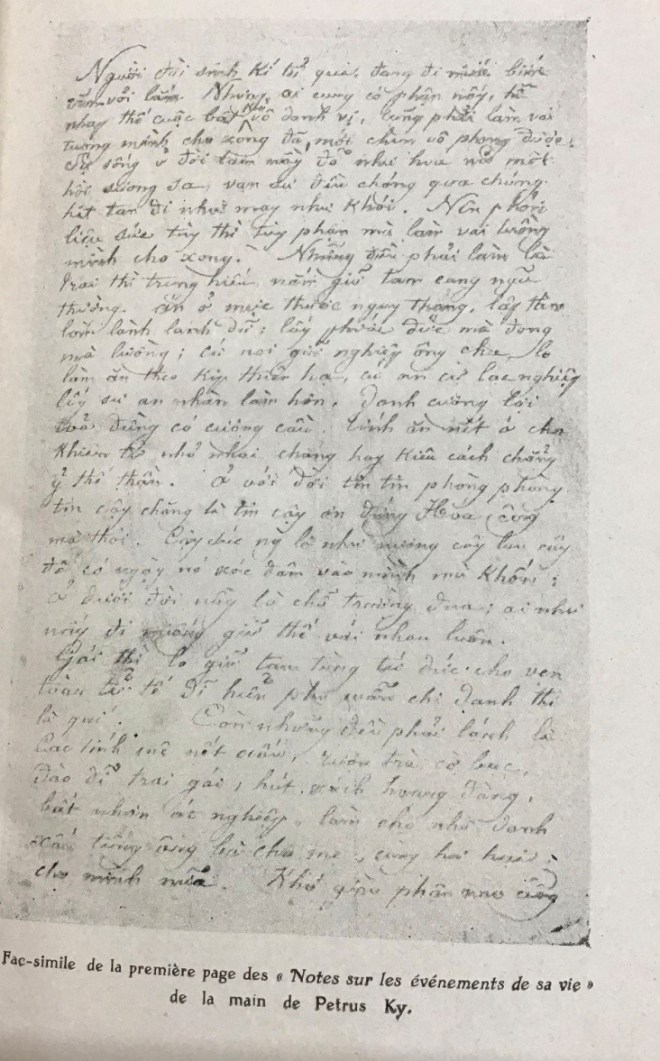 Người đời sinh kí tử qui, đang đi miết biến
vắn vỏi lắm. Nhưng ai cũng có phận nấy, hễ
nhay thế cuộc bất luận vô danh vị, cũng phải làm vai
tuồng mình cho xong đã, mới chun vô phòng được.
Sự sống ở đời tạm nầy đỗ như hư nát một
hột sương sa, vạn sự đều chóng qua chúng
hết tan đi như mây như khói. Nên phải
liệu sức tùy thì tùy phận mà làm vai tuồng
mình cho xong. Những đều phải làm là
trai thì trung hiếu, nắm giữ tam cang ngũ
thường. ăn ở mực thước ngay thẳng, lấy
làm lành lánh dữ; lấy phước đức mà đong
mà lường; cứ noi giữ nghiệp ông cha, lo
làm ăn theo kịp thiên hạ, cứ an cư lạc nghiệp
lấy sự an nhàn làm hơn. Danh cương lợi
toả đừng có cưỡng cầu. tính ăn nết ở cho
khiêm từ nhỏ nhoi chẳng hay kiêu cách chẳng
ỷ thế thần. Ở với đời tin tin phòng phòng
tin cậy chăng là tin cậy ơn đấng Hóa công
mà thôi. Cậy sức ng là như nương cây lau cây
đề có ngày nó xóc đâm vào mình mà khốn;
ở dưới đời nầy là chỗ trường đua; ai như
nấy đi miếng giữ thế với nhau luôn.
Gái thì lo giữ tam tùng tứ đức cho vẹn
toàn tử tế để hiển phụ mẫu chi danh thì
là quí. Còn những đều phải lánh là
Các tính mê nết xấu, rượu trà cờ bạc,
đào đĩ trai gái, hút xách hoang đàng,
bất nhơn ác nghiệp, làm cho nhơ danh
xấu tiếng ông bà cha mẹ, cùng hư hoại
cho mình nữa. Khó giàu phận nào cũng
Fac-simile de la première page des « Notes sur les événements de sa vie »
de la main de Petrus Ky.